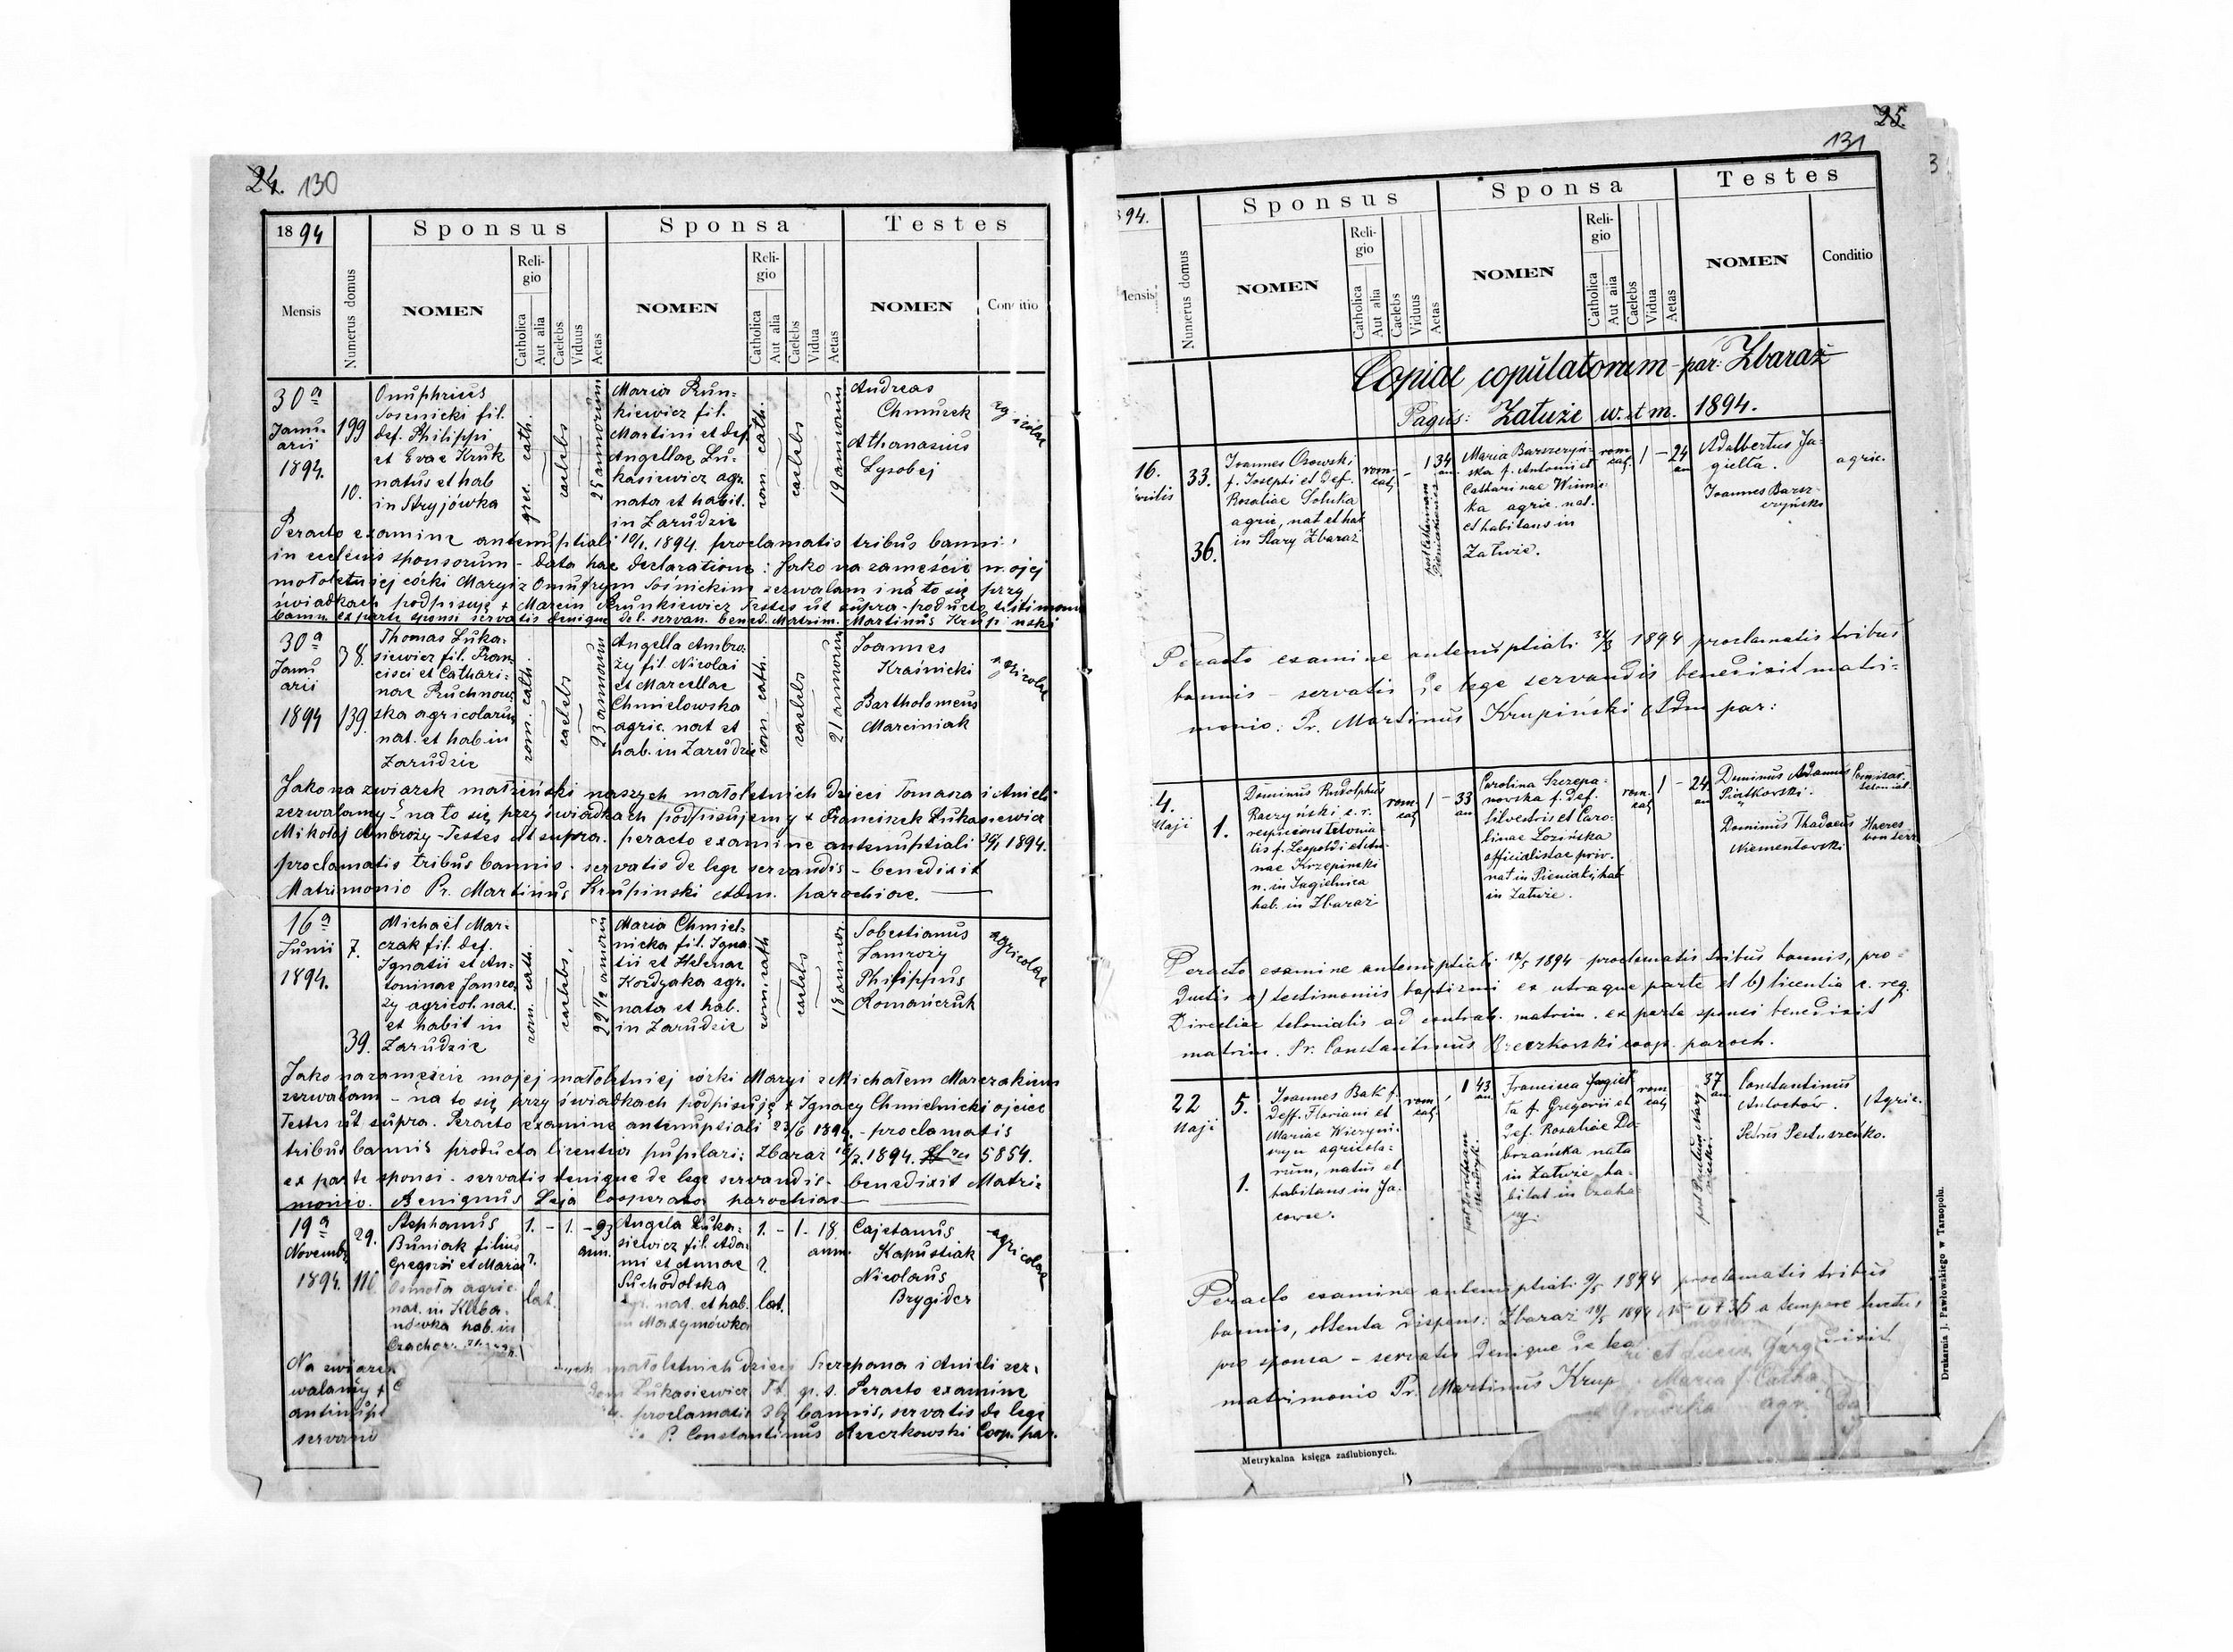 24. 130
18 94
Sponsus
Sponsa
Testes
Mensis
Numerus domus
NOMEN
Reli-
gio
Catholica
Aut alia
Caelebs
Viduus
Aetas
NOMEN
Reli-
gio
Catholica
Aut alia
Caelebs
Vidua
Aetas
NOMEN
Conditio
30a
Janu-
arii
1894.
199
10.
Onuphrius
Sosnicki fil.
def. Philippi
et Evae Kruk
natus et hab
in Stryjówka
grec. cath.
caelebs
25 annorum
Maria Prun-
kiewicz fil.
Martini et def.
Angellae Lu-
kasiewicz agr.
nata et habit.
in Zarudzie
rom. cath.
caelebs
19 annorum
Andreas
Chmurek
Athanasius
Lysobej
Peracto examine antenuptiali 10/1. 1894. proclamatis tribus bannis
in ecclesiis sponsorum - data hac declaratione: Jako na zamęście mojej
małoletniej córki Maryi z Onufrym Sośnickim zezwalam i na to się przy
świadkach podpisuję + Marcin Prunkiewicz Testes ut supra - producto testimonio
bann. ex parte sponsi servatis denique de l. servan. bened. Matrim. Martinus Krupiński
30a
Janu
arii
1894
38.
139.
Thomas Luka-
siewicz fil. Fran-
cisci et Cathari-
nae Pruchnow-
ska agricolarum
nat. et hab. in
Zarudzie
rom. cath.
caelebs
23 annorum
Angella Ambro-
ży fil. Nicolai
et Marcellae
Chmielowska
agric. nat et
hab. in Zarudzie
rom. cath.
caelebs
21 annorum
Joannes
Kraśnicki
Bartholomeus
Marciniak
agricolae
Jako na związek małżeński naszych małoletnich dzieci Tomasza i Anieli
zezwalamy - na to się przy świadkach podpisujemy + Franciszek Łukasiewicz
Mikołaj Ambroży - Testes ut supra. peracto examine antenuptiali 1894.
proclamatis tribus bannis - servatis de lege servandis - benedixit
Matrimonio Pr. Martinus Krupinski Adm. parochiae.
16a
Junii
1894.
7.
39.
Michaël Mar-
czak fil. def.
Ignatii et An-
toninae Jamro-
ży agricol. nat.
et habit in
Zarudzie
rom. cath.
caelebs.
22 1/2 annorum
Maria Chmiel-
nicka fil. Igna-
tii et Helenae
Kordyaka agr.
nata et hab.
in Zarudzie
rom. cath
caelebs
18 annor.
Sobestianus
Jamroży
Philippus
Romańczuk
agricolae
Jako na zamęście mojej małoletniej córki Maryi z Michałem Marczakiem
zezwalam - na to się przy świadkach podpisuję + Ignacy Chmielnicki ojciec
Testes ut supra. Peracto examine antenuptiali 23/6 1894. - proclamatis
tribus bannis producta licentia pupilari: Zbaraż 1894. 5854.
ex parte sponsi - servatis denique de lege servandis - benedixit Matri-
monio. Benignus Leja Cooperator parochiae
19a
Novembr.
1894.
29.
116
Stephanus
Buniak filius
Gregorii et Mariae
Osmola agric.
nat. in Kleba-
nówka hab. in
1. - 1. - 23
ann.
r.
lat.
Angela Luka-
siewicz fil. Ada-
mi et Annae
Suchodolska
agr. nat. et hab.
in Maxymówka
1. - 1. 18.
ann.
r.
lat.
Cajetanus
Kapustiak
Nicolaus
Brygider
agricolae
Na związek małoletnich dzieci Szczepana i Anieli zez-
walamy + Łukasiewicz T. Peracto examine
proclamatis 3b bannis, servatis de lege
servand P. Constantinus Rzeczkowski Coop. par.
25.
131
94.
Sponsus
Sponsa
Testes
Mensis
Numerus domus
NOMEN
Reli-
gio
Catholica
Aut alia
Caelebs
Viduus
Aetas
NOMEN
Reli-
gio
Catholica
Aut alia
Caelebs
Vidua
Aetas
NOMEN
Conditio
Copiae copulatorum par: Zbaraż
Pagus: Załuże w. et m. 1894.
16.
33.
36.
Joannes Osowski
f. Josephi et def.
Rosaliae Soluka
agric, nat et hab
in Stary Zbaraż
rom.
cat.
1 34
an.
Maria Barszczyń-
ska f. Antonii et
Catharinae Winnic
ka agric. nat.
et habitans in
Załuże.
rom.
cat.
1 - 24
an
Adalbertus Ja-
giełła.
Joannes Barsz-
czyński
agric.
Peracto examine antenuptiali 1894 proclamatis tribus
bannis - servatis de lege servandis benedixit matri-
monio: Pr. Martinus Krupiński Adm par:
4.
Maji
1.
Dominus Rudolphus
Raczyński c. r.
respiciens telonia-
lis f. Leopoldi et An-
nae Krzepinski
n. in Jagielnica
hab. in Zbaraż
rom.
cat.
1 - 33
an
Carolina Szczepa-
nowska f. def.
Silvestris et Caro-
linae Lozińska
officialistae priv.
nat in Pieniaki, hab
in Załuże.
rom.
cat.
1 - 24
an
Dominus Adamus
Piątkowski.
Dominus Thadaeus
Niementowski
Comisar.
telonial.
Haeres
Peracto examine antenuptiali 12/5 1894 proclamatis tribus bannis, pro-
ductis a) testimoniis baptismi ex utraque parte et b) licentia c. reg.
Directiae telonialis ad contrah. matrim. ex parte sponsi benedixit
matrim. Pr. Constantinus Rzeczkowski coop. paroch.
22
Maji
5.
1.
Joannes Bak f.
deff. Floriani et
Mariae Wierzyń-
szyn agricola-
rum, natus et
habitans in Ja-
cowce.
rom
cat.
1 43
an.
Francisca Jagieł-
ła f. Gregorii et
def. Rosaliae Do-
brzańska nata
in Załuże, ha-
bitat in Czaha-
ry.
rom
cat.
37
an.
Constantinus
Antochów.
Petrus Pestuszeńko.
Agric.
Peracto examine antenuptiali 9/5 1894 proclamatis tribus
bannis, obtenta dispens: Zbaraż 18/5 1894 a tempore luctus
pro sponsa - servatis denique de
matrimonio Pr. Martinus Krup
Metrykalna księga zaślubionych.
Drukarnia J. Pawłowskiego w Tarnopolu.